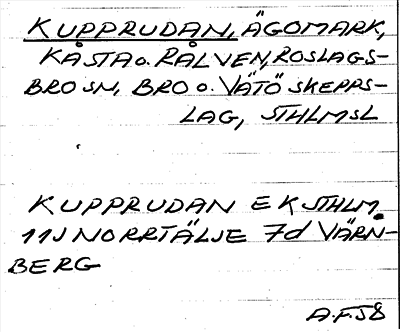 KUPPRUDAN, ÄGOMARK,
KÅSTA o. RÅLVEN, ROSLAGS-
BRO SN, BRO o. VÄTÖ SKEPPS-
LAG, STHLMSL
KUPPRUDAN EK STHLM
11J NORRTÄLJE 7d VÄRN-
BERG
A.F. 58